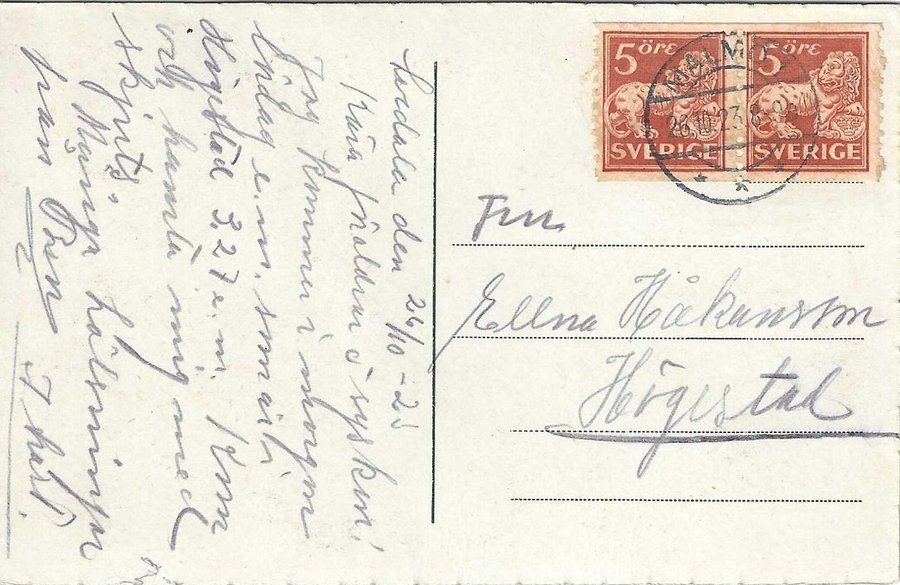 Svedala den 26/10 - 23
Kära föräldrar o syskon!
Jag kommer i morgon
lördag e.m. som är i
Högestad 3,27 e.m. Kom
och hämta mig med
skjuts.
Många hälsningar
från
I hast!
5 ÖRE 5 ÖRE
SVERIGE SVERIGE
MALMÖ
26.10.23.8
Frn
Ellna Håkansson
Högestad